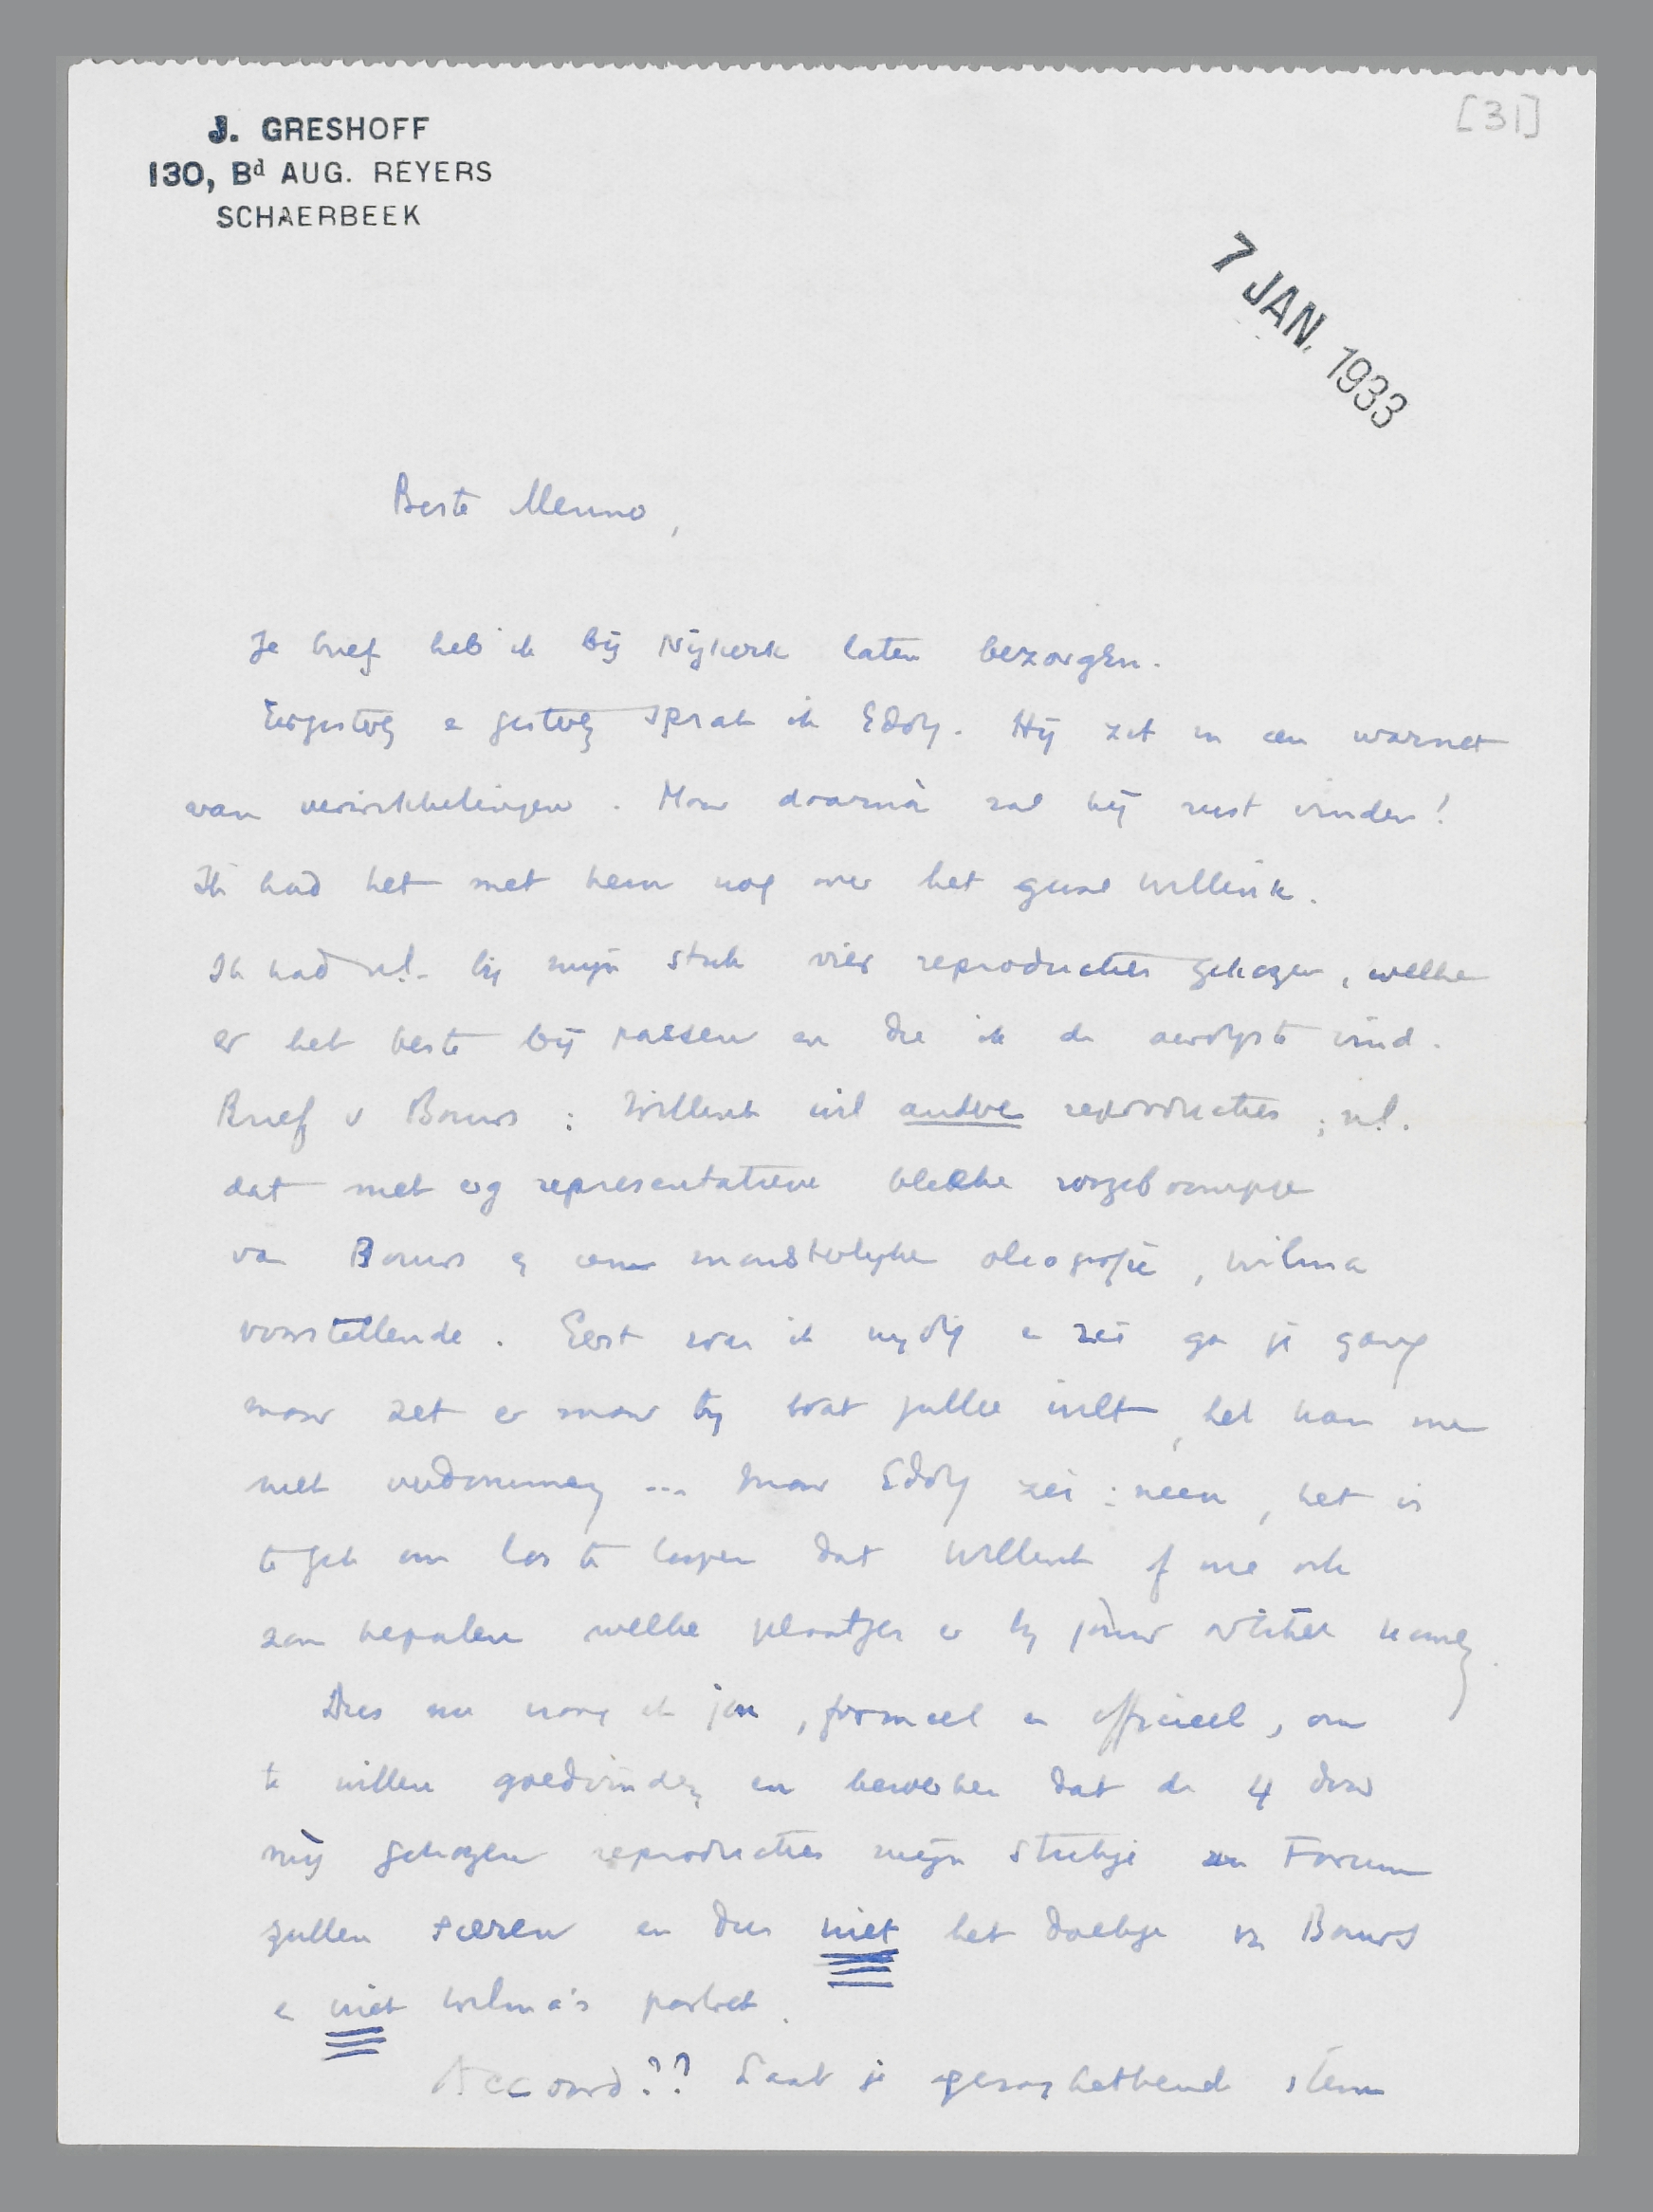 J. GRESHOFF
130, Bd AUG. REYERS
SCHAERBEEK
[31]
7 JAN. 1933
Beste Menno,
Je brief heb ik bij Nijkerk laten bezorgen.
Eergistren en gistren sprak ik Eddy. Hij zit in een warnet
van verwikkelingen. Maar daarnà zal hij rust vinden!
Ik had het met hem nog over het geval Willink.
Ik had nl. bij mijn stuk vier reproducties gekozen, welke
er het beste bij passen en die ik de aardigste vind.
Brief v Bouws: Willink wil andere reproducties; nl.
dat niet erg representatieve
van Bouws en een monsterlijke oleografie, Wilma
voorstellende. Eerst was ik nijdig en zei ga je gang
maar zet er maar bij wat jullie wilt, het kan me
niet verdommen ... maar Eddy zei: neen, het is
te gek om los te loopen dat Willink of wie ook
zou bepalen welke plaatjes er bij jòuw artikel komen.
Dus nu vraag ik jou, formeel en officieel, om
te willen goedvinden en bewerken dat de 4 door
mìj gekozen reproducties mijn stukje in Forum
zullen sieren en dus niet het doekje van Bouws
en niet Wilma's portret.
Accoord?? Laat je gezaghebbende stem